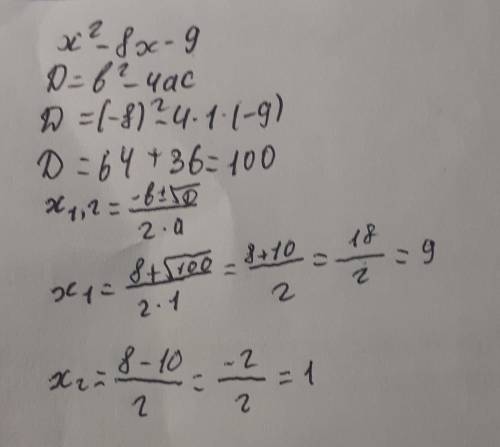 x² - 8x - 9
D = b² - 4ac
D = (-8)² - 4·1·(-9)
D = 64 + 36 = 100
x₁,₂ = (-b±√D)/(2·a)
x₁ = (8+√100)/(2·1) = (8+10)/2 = 18/2 = 9
x₂ = (8-10)/2 = -2/2 = 1